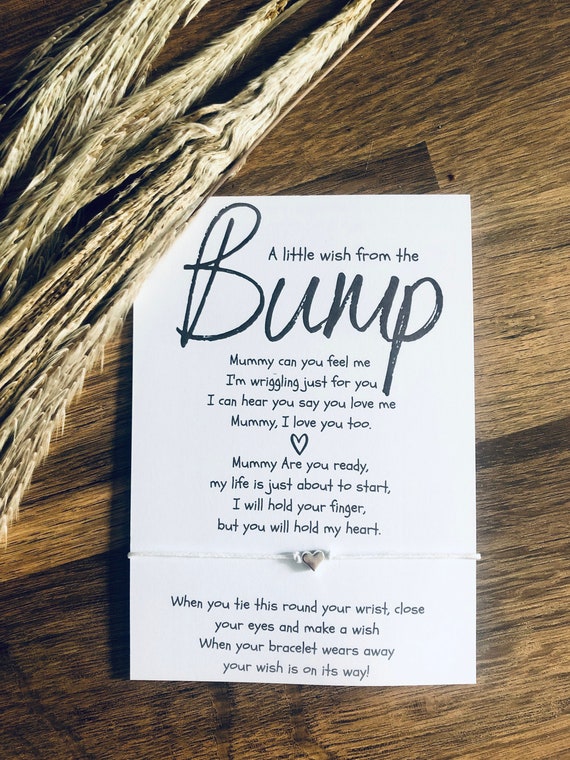 A little wish from the
Bump
Mummy can you feel me
I'm wriggling just for you
I can hear you say you love me
Mummy, I love you too.
Mummy Are you ready,
my life is just about to start,
I will hold your finger,
but you will hold my heart.
When you tie this round your wrist, close
your eyes and make a wish
When your bracelet wears away
your wish is on its way!